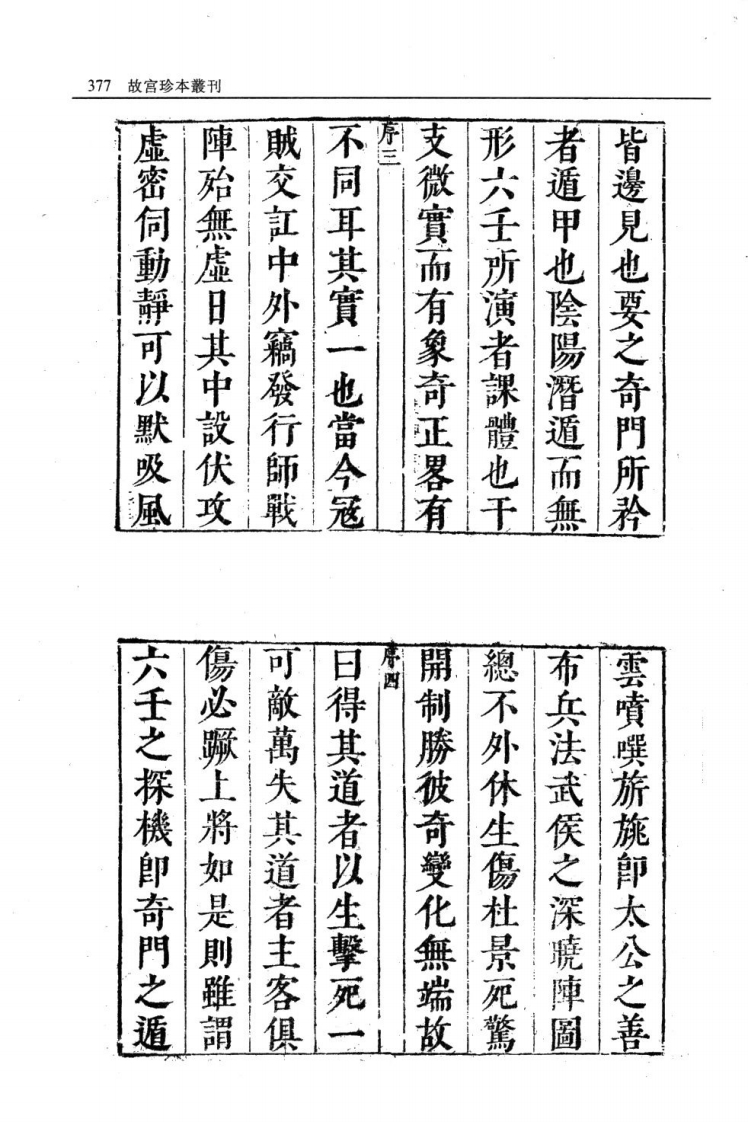 377 故宮珍本叢刊
皆邊見也要之奇門所矜
者遁甲也陰陽潛遁而無
形六壬所演者課體也干
支微實而有象奇正畧有
序三
不同耳其實一也當今冦
賊交訌中外竊發行師戰
陣殆無虛日其中設伏攻
虛密伺動靜可以默吸風
雲噴噀旂旐卽太公之善
布兵法武侯之深曉陣圖
總不外休生傷杜景死驚
開制勝彼奇變化無端故
序四
曰得其道者以生擊死一
可敵萬失其道者主客俱
傷必蹶上將如是則雖謂
六壬之探機卽奇門之遁